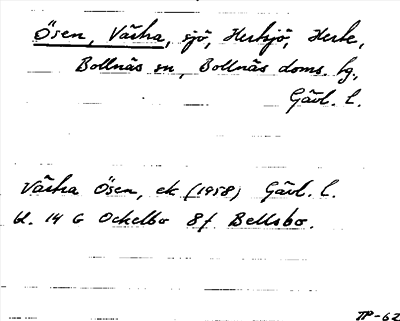 Ösen, Västra, sjö, Herte,
Bollnäs sn, Bollnäs doms. hg,
Gävl. l.
Västra Ösen, ek (1958) Gävl. l.
bl. 14 G Ockelbo 8f Bellsbo.
TP-62